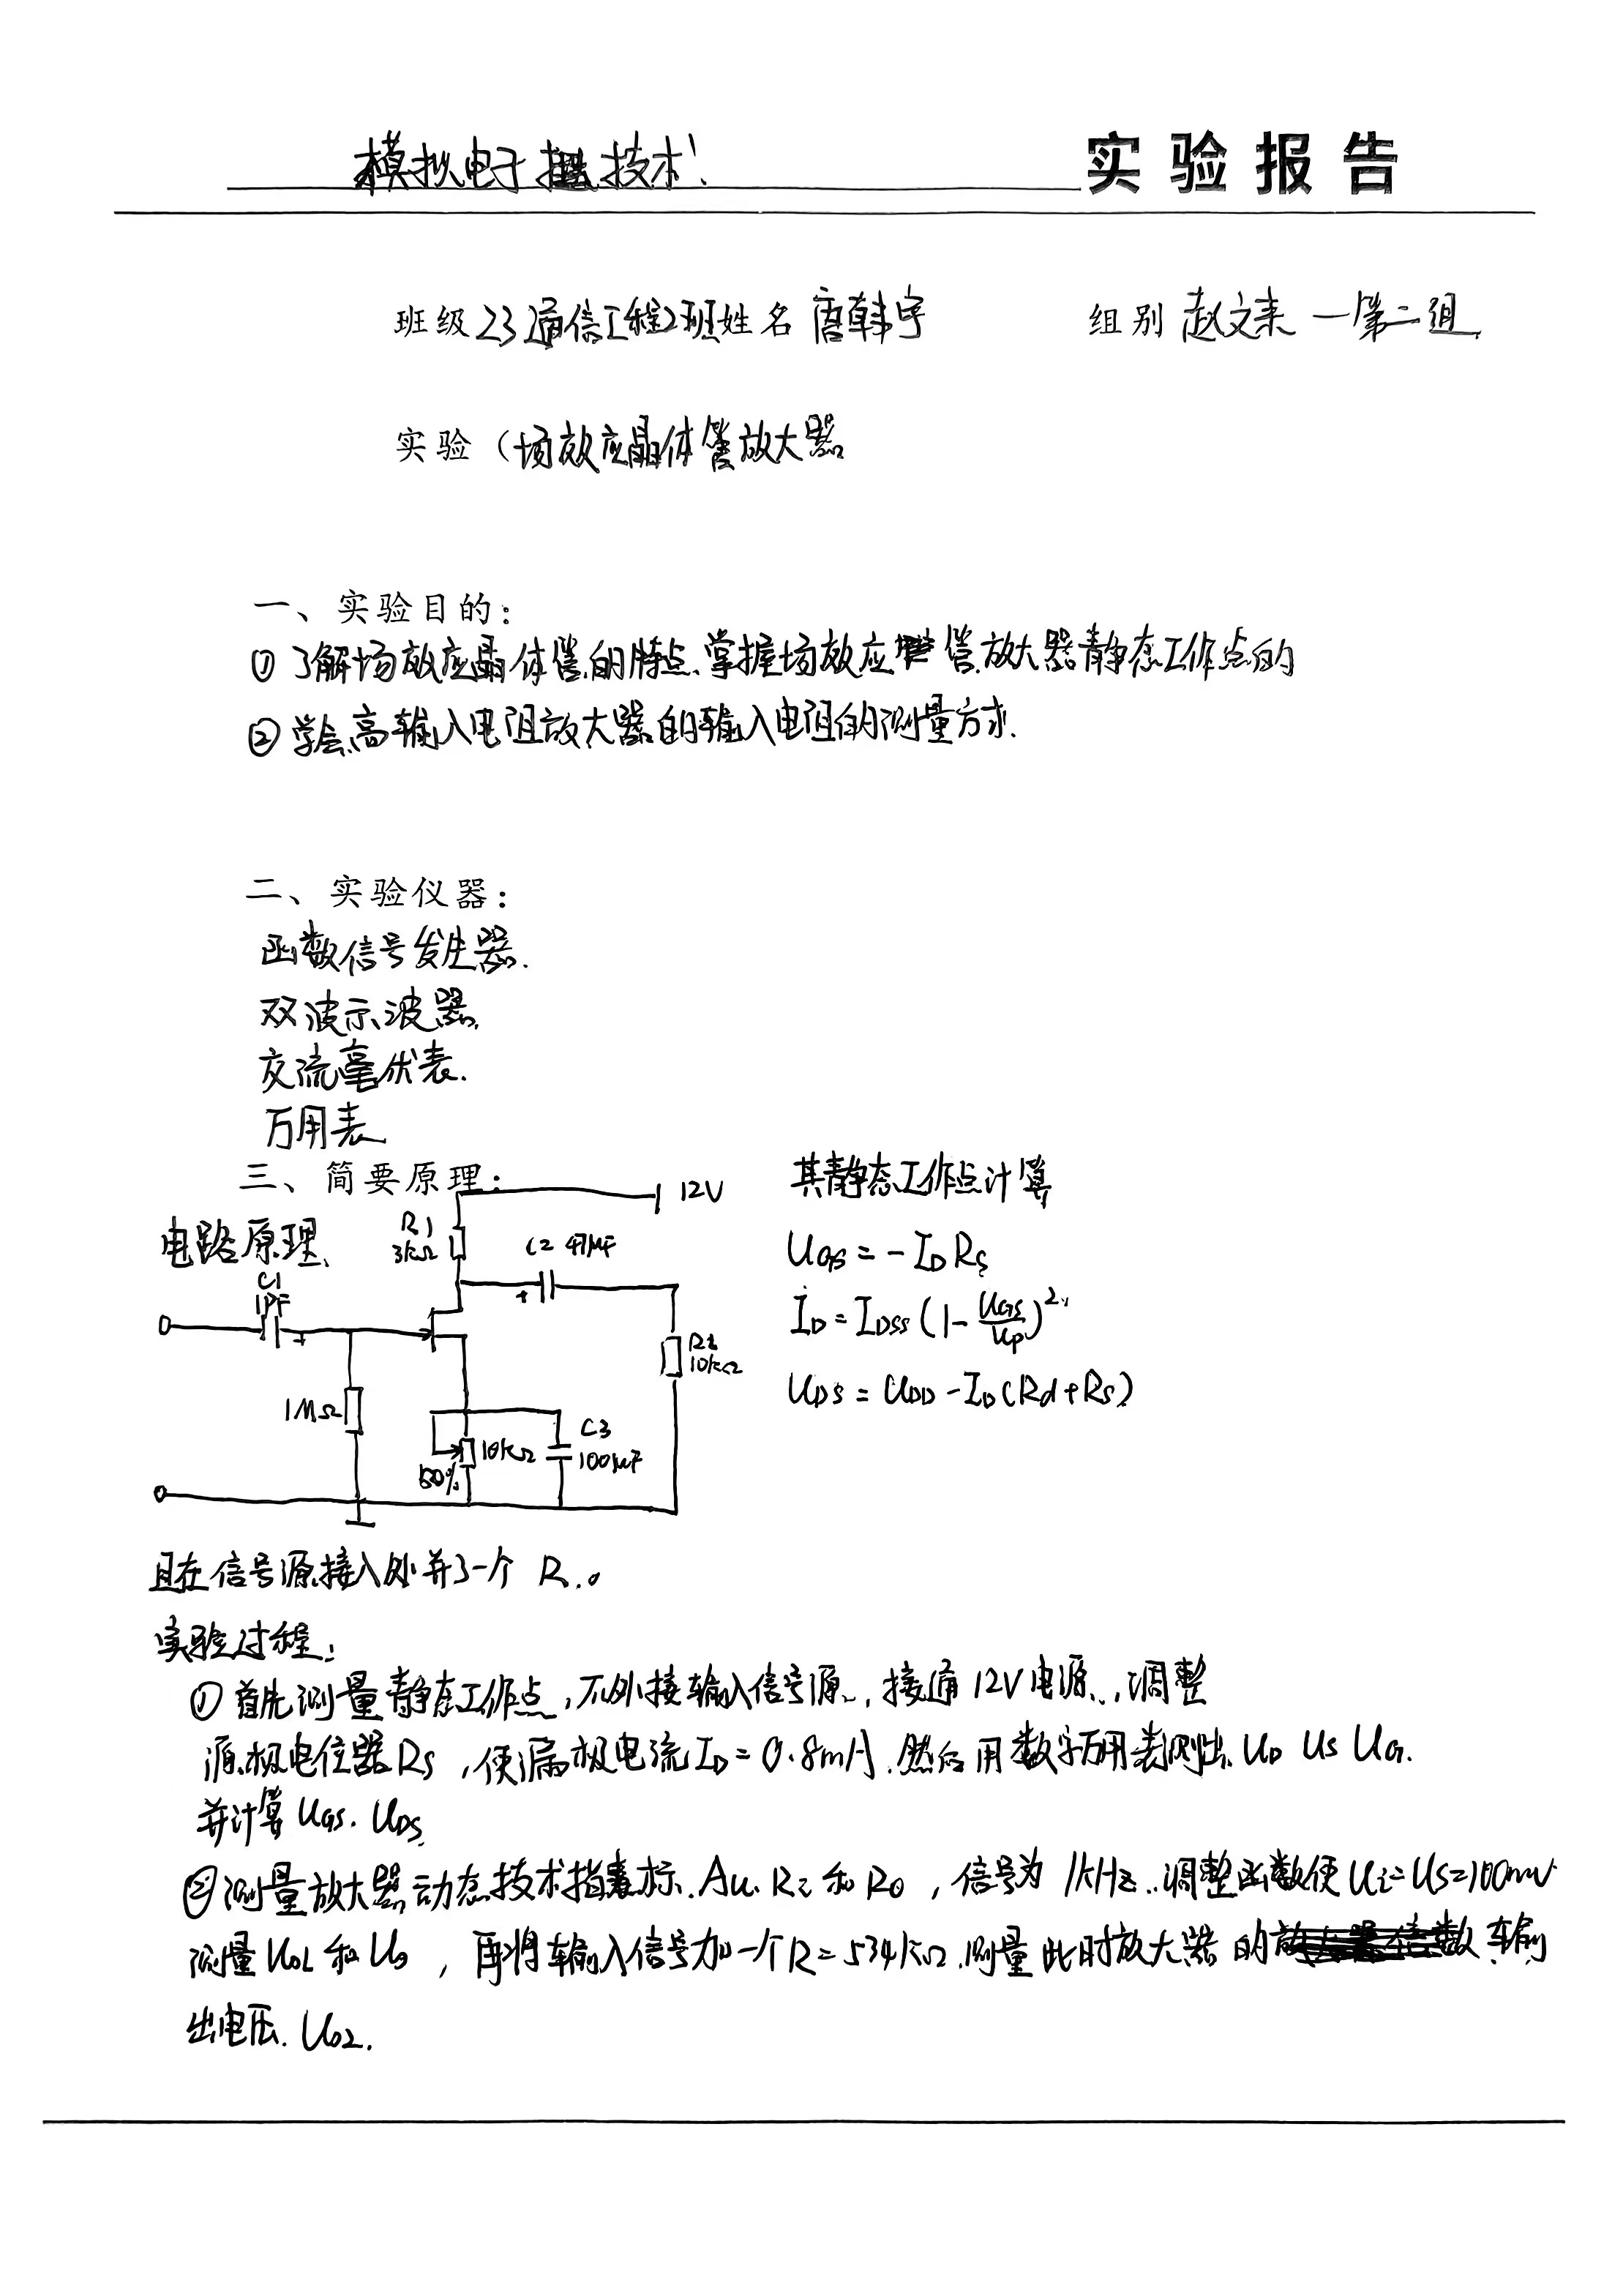 模拟电子技术 实验报告
班级 23通信工程2班 姓名 唐韩宇 组别 赵文来 — 第二组
实验(场效应晶体管放大器
一、实验目的:
① 了解场效应晶体管的特点.掌握场效应管放大器静态工作点的
② 学会高输入电阻放大器的输入电阻的测量方求.
二、实验仪器:
函数信号发生器.
双波示波器.
交流毫伏表.
万用表
三、简要原理:
电路原理、
12V
R1
3kΩ
C2 47μF
C1
1PF
+
+
10kΩ
1MΩ
10kΩ
50%
C3
100μF
其静态工作点计算
UGS = -ID RS
ID = IDSS (1 - UGS/UP)²
UDS = UDD - ID (Rd + Rs)
且在信号源接入处并了一个 R.。
实验过程:
① 首先测量静态工作点,不外接输入信号源,接通12V电源,调整
源极电位器Rs,使漏极电流ID=0.8mA.然后用数字万用表测出 UD US UG.
并计算UGS.UDS
② 测量放大器动态技术指标.Au.Ri和R0,信号为1kHz.调整函数使Ui=Us=100mv
测量UOL和U0,再将输入信号加一个R=534kΩ.测量此时放大器的输
出电压.U02.